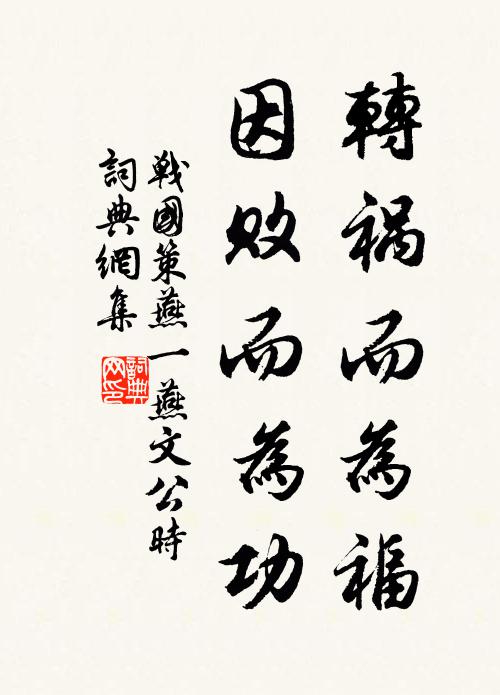 轉禍而為福
因敗而為功
戰國策燕一燕文公時
詞典網集
詞典网印